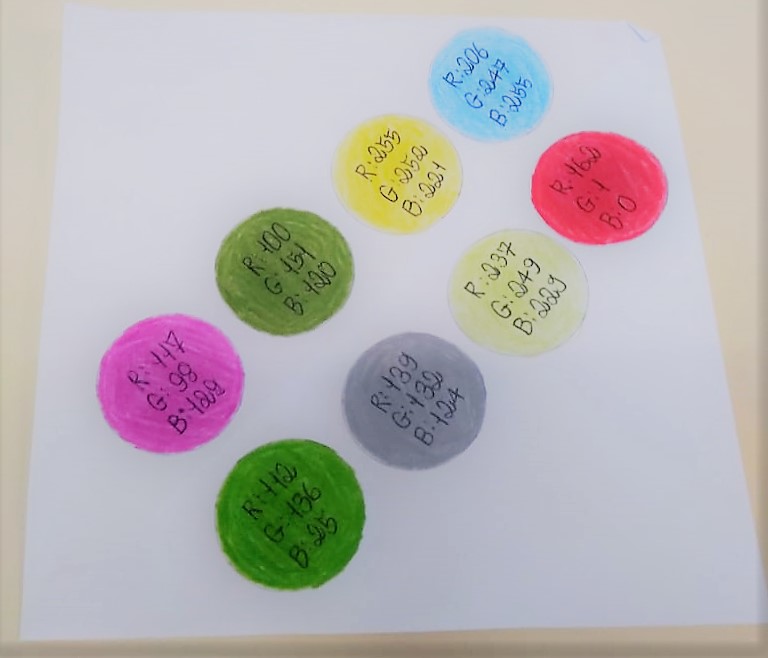 R:206
G:247
B:255
R:255
G:252
B:221
R:162
G:1
B:0
R:100
G:151
B:120
R:237
G:249
B:229
R:117
G:98
B:129
R:139
G:132
B:124
R:112
G:136
B:25